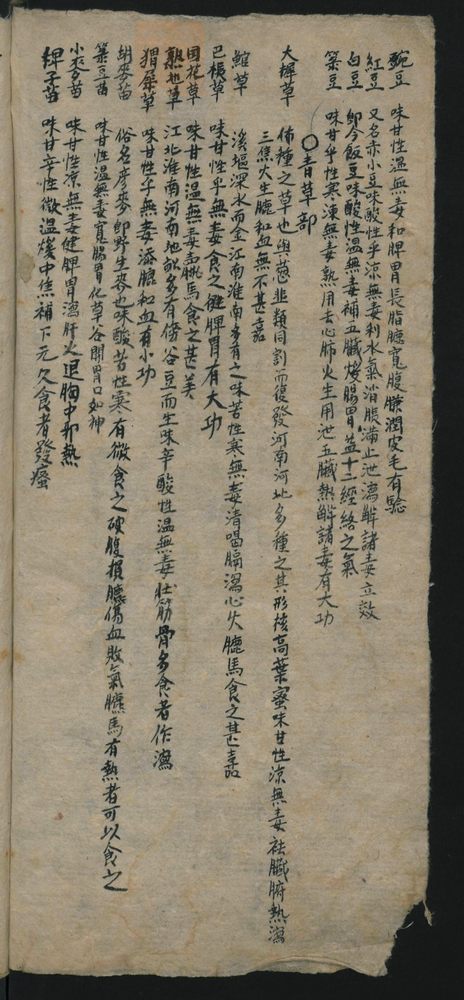 豌豆 味甘性温無毒和脾胃長脂膘寬腹臁潤皮毛有驗
紅豆 又名赤小豆味酸性平涼無毒利水氣消脹滿止泄瀉觧諸毒立效
白豆 即今飯豆味酸性温無毒補五臟煖腸胃益十二經絡之氣
菉豆 味甘平性寒凍無毒熟用去心肺火生用泄五臟熱觧諸毒有大功
○青草部
大 草 種之草也與葱韭類同割而復發河南河北多種之其形 高葉蜜味甘性涼無毒祛臟腑熱瀉
三焦火生膘和血無不甚嘉
草 溪堰深水而全江南淮南多有之味苦性寒無毒清咽膈瀉心火膘馬食之甚嘉
巴根草 味甘性平無毒食之健脾胃有大功
田花草 味甘性温無毒 馬食之甚美
草 江北淮南河南地 多有傍谷豆而生味辛酸性温無毒壯筋骨多食者作瀉
猬屎草 味甘性平無毒添膘和血有小功
胡麥苗 俗名彦麥即野生麥也味酸苦性寒有微食之破腹損膘傷血敗氣臕馬有熱者可以食之
菉豆苗 味甘性温無毒寬腸胃化草谷開胃口如神
小麥苗 味甘性凉無毒健脾胃瀉肝火退胸中邪熱
稗子苗 味甘辛性微温煖中焦補下元久食者發瘙